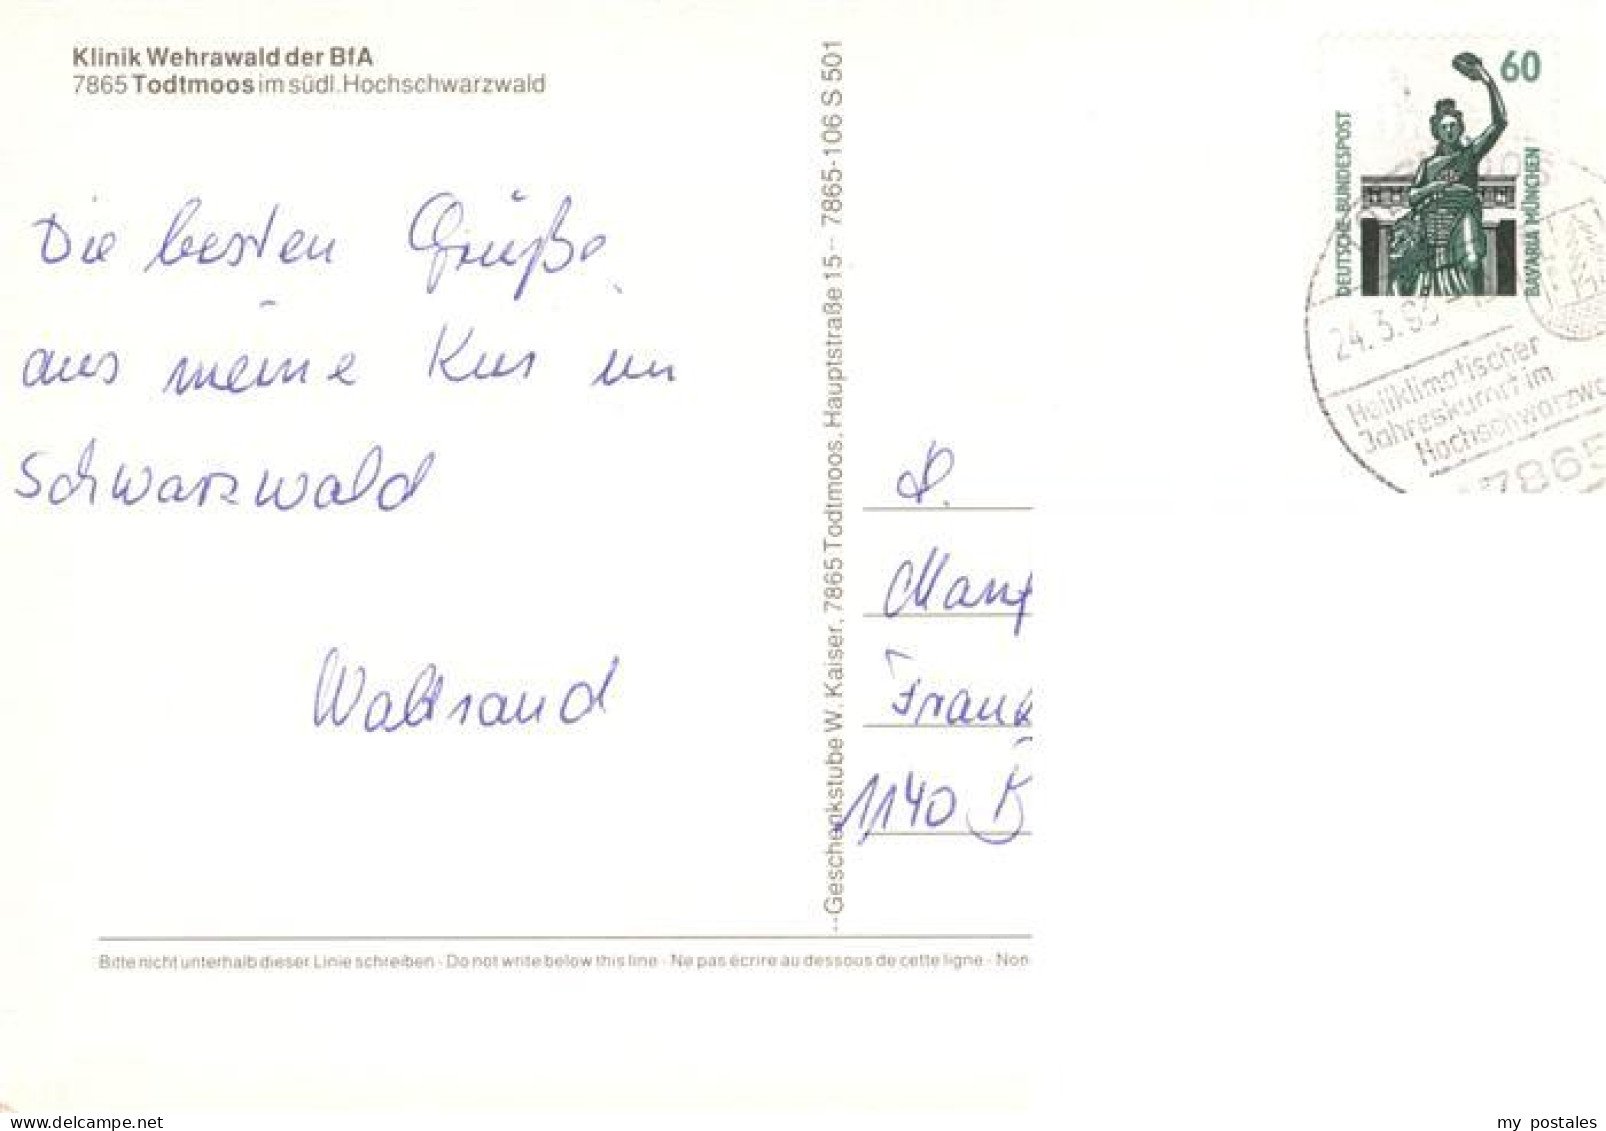 Klinik Wehrawald der BfA
7865 Todtmoos im südl. Hochschwarzwald
Die besten Grüße
aus meine Kur im
Schwarzwald
Waltraud
--Geschenkstube W. Kaiser, 7865 Todtmoos, Hauptstraße 15-- 7865-106 S 501
60
DEUTSCHE BUNDESPOST
BAVARIA MÜNCHEN
24.3.93
Heilklimatischer
Jahreskurort im
Hochschwarzwa
7865
Manf
Frank
1140 B
Bitte nicht unterhalb dieser Linie schreiben - Do not write below this line - Ne pas écrire au dessous de cette ligne - Non
www.delcampe.net
my_postales